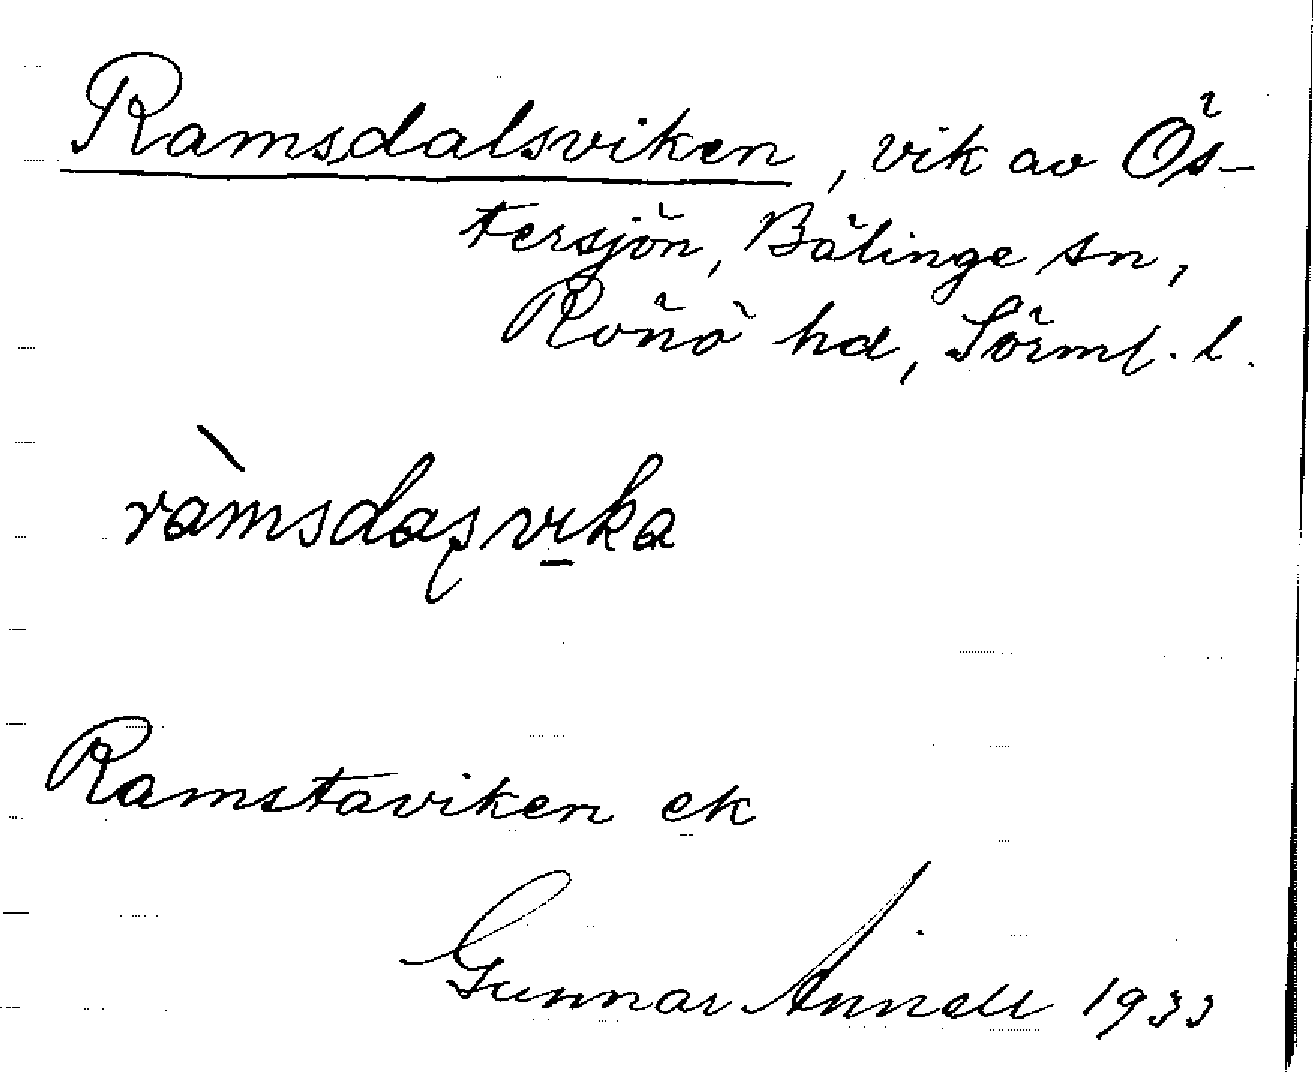 Ramsdalsviken, vik av Ös-
tersjön, Bälinge sn,
Rönö hd, Sörml. l.
ràmsdaʂvi̠ka
Ramstaviken ek
Gunnar Annell 1933